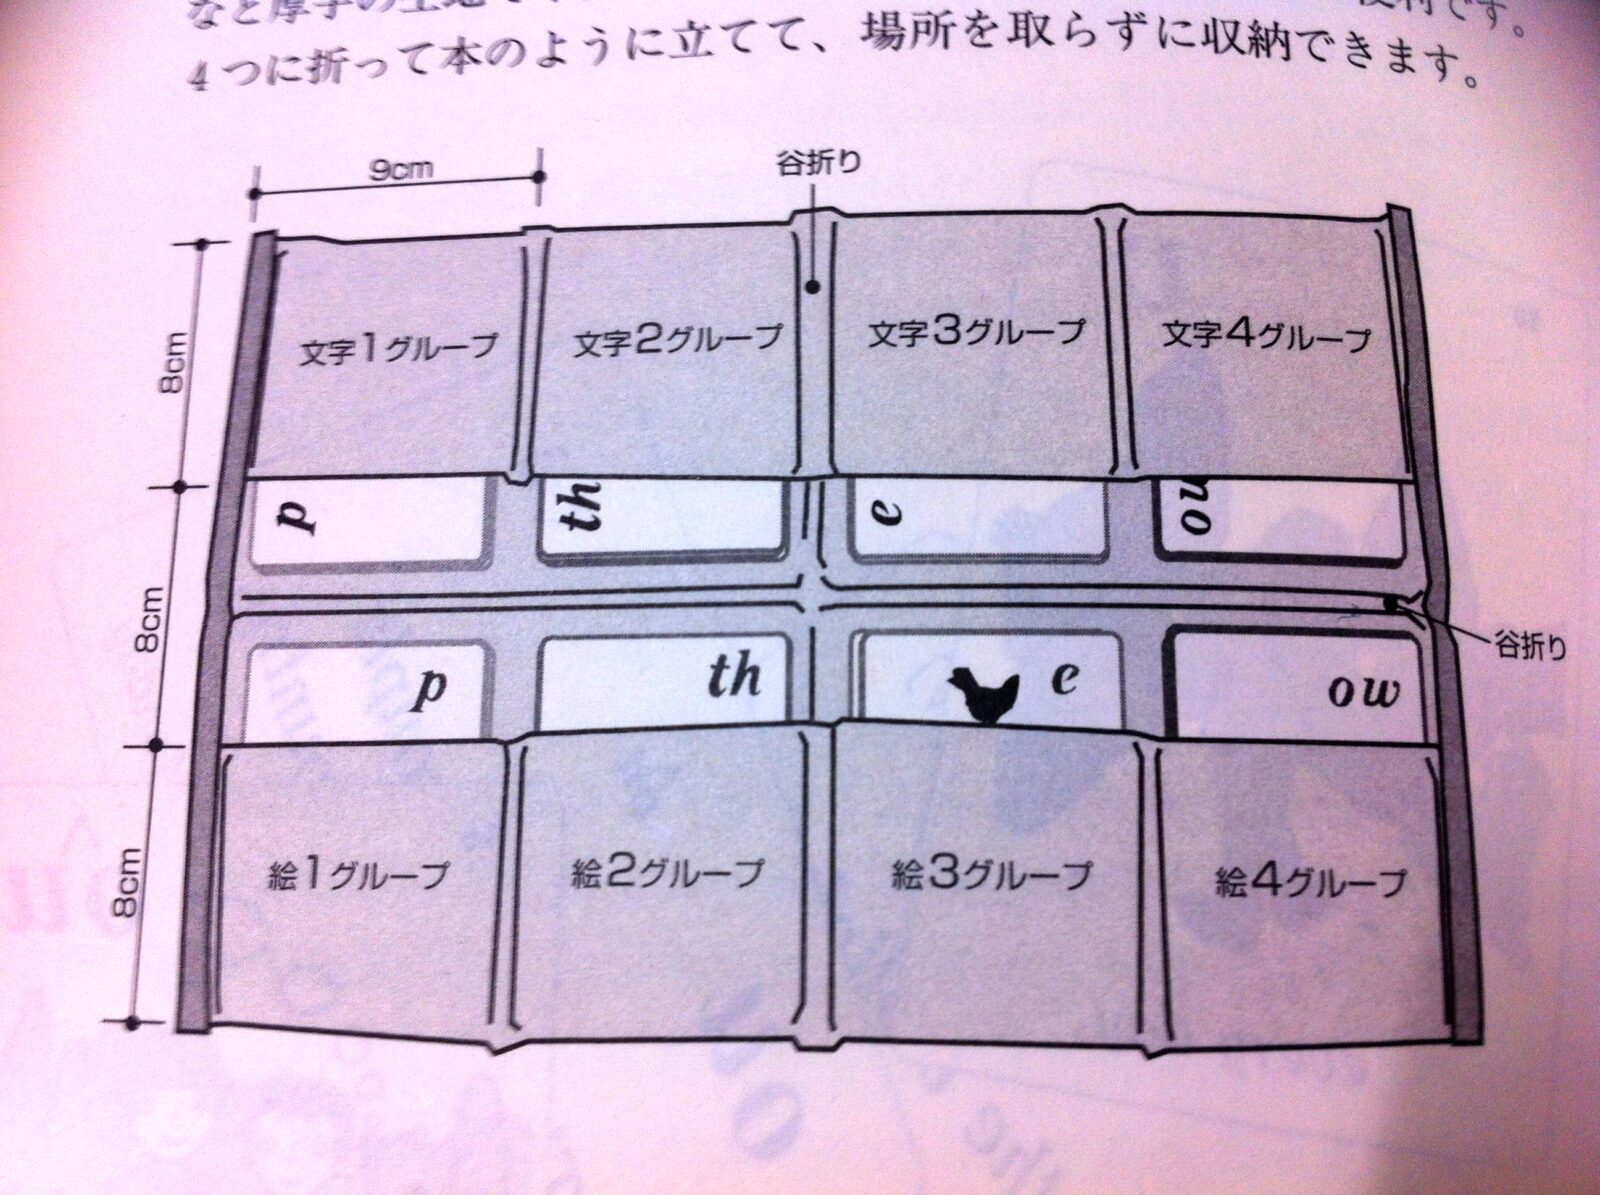 なと厚手の生地で
便利です。
4つに折って本のように立てて、場所を取らずに収納できます。
9cm
谷折り
8cm
文字1グループ
文字2グループ
文字3グループ
文字4グループ
p
th
e
ow
8cm
谷折り
p
th
e
ow
8cm
絵1グループ
絵2グループ
絵3グループ
絵4グループ